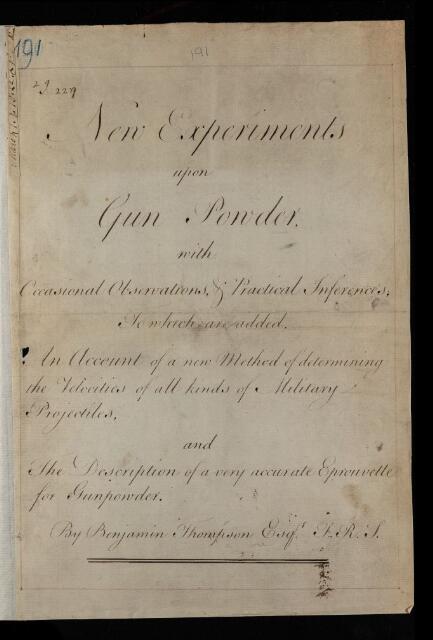 191
191
229
New Experiments
upon
Gun Powder,
with
Occasional Observations, & Practical Inferences;
To which are added,
An Account of a new Method of determining
the Velocities of all kinds of Military
Projectiles,
and
The Description of a very accurate Eprouvette
for Gunpowder.
By Benjamin Thompson Esqr. F. R. S.